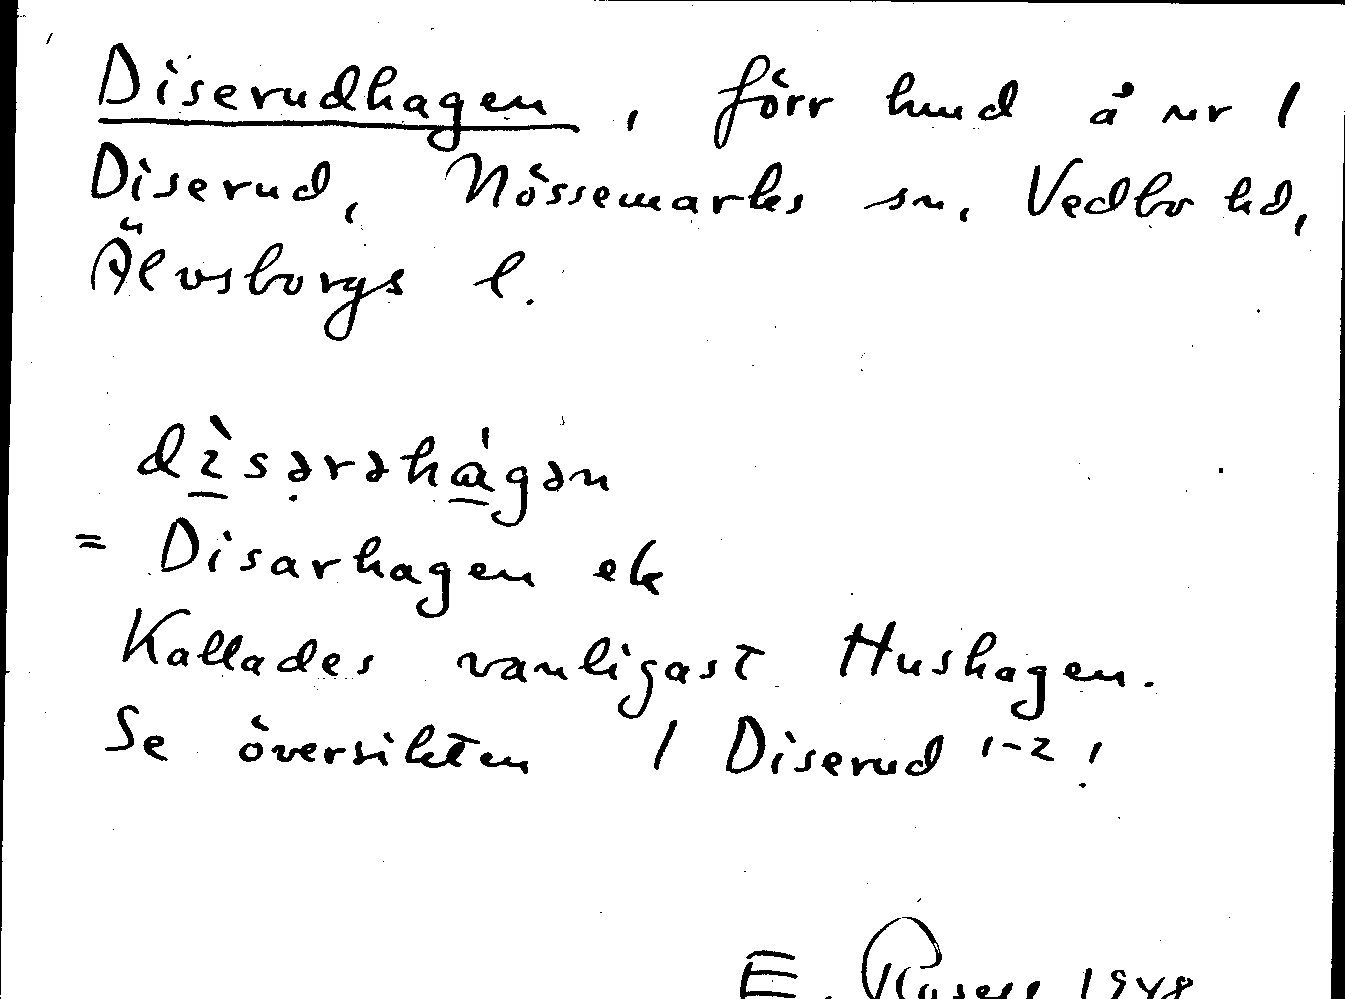 Diserudhagen, förr hmd å nr 1
Diserud, Nössemarks sn, Vedbo hd,
Älvsborgs l.
dìsərəhágən
= Disarhagen
Kallades vanligast Hushagen.
Se översikten 1 Diserud 1-2!
E. 1948